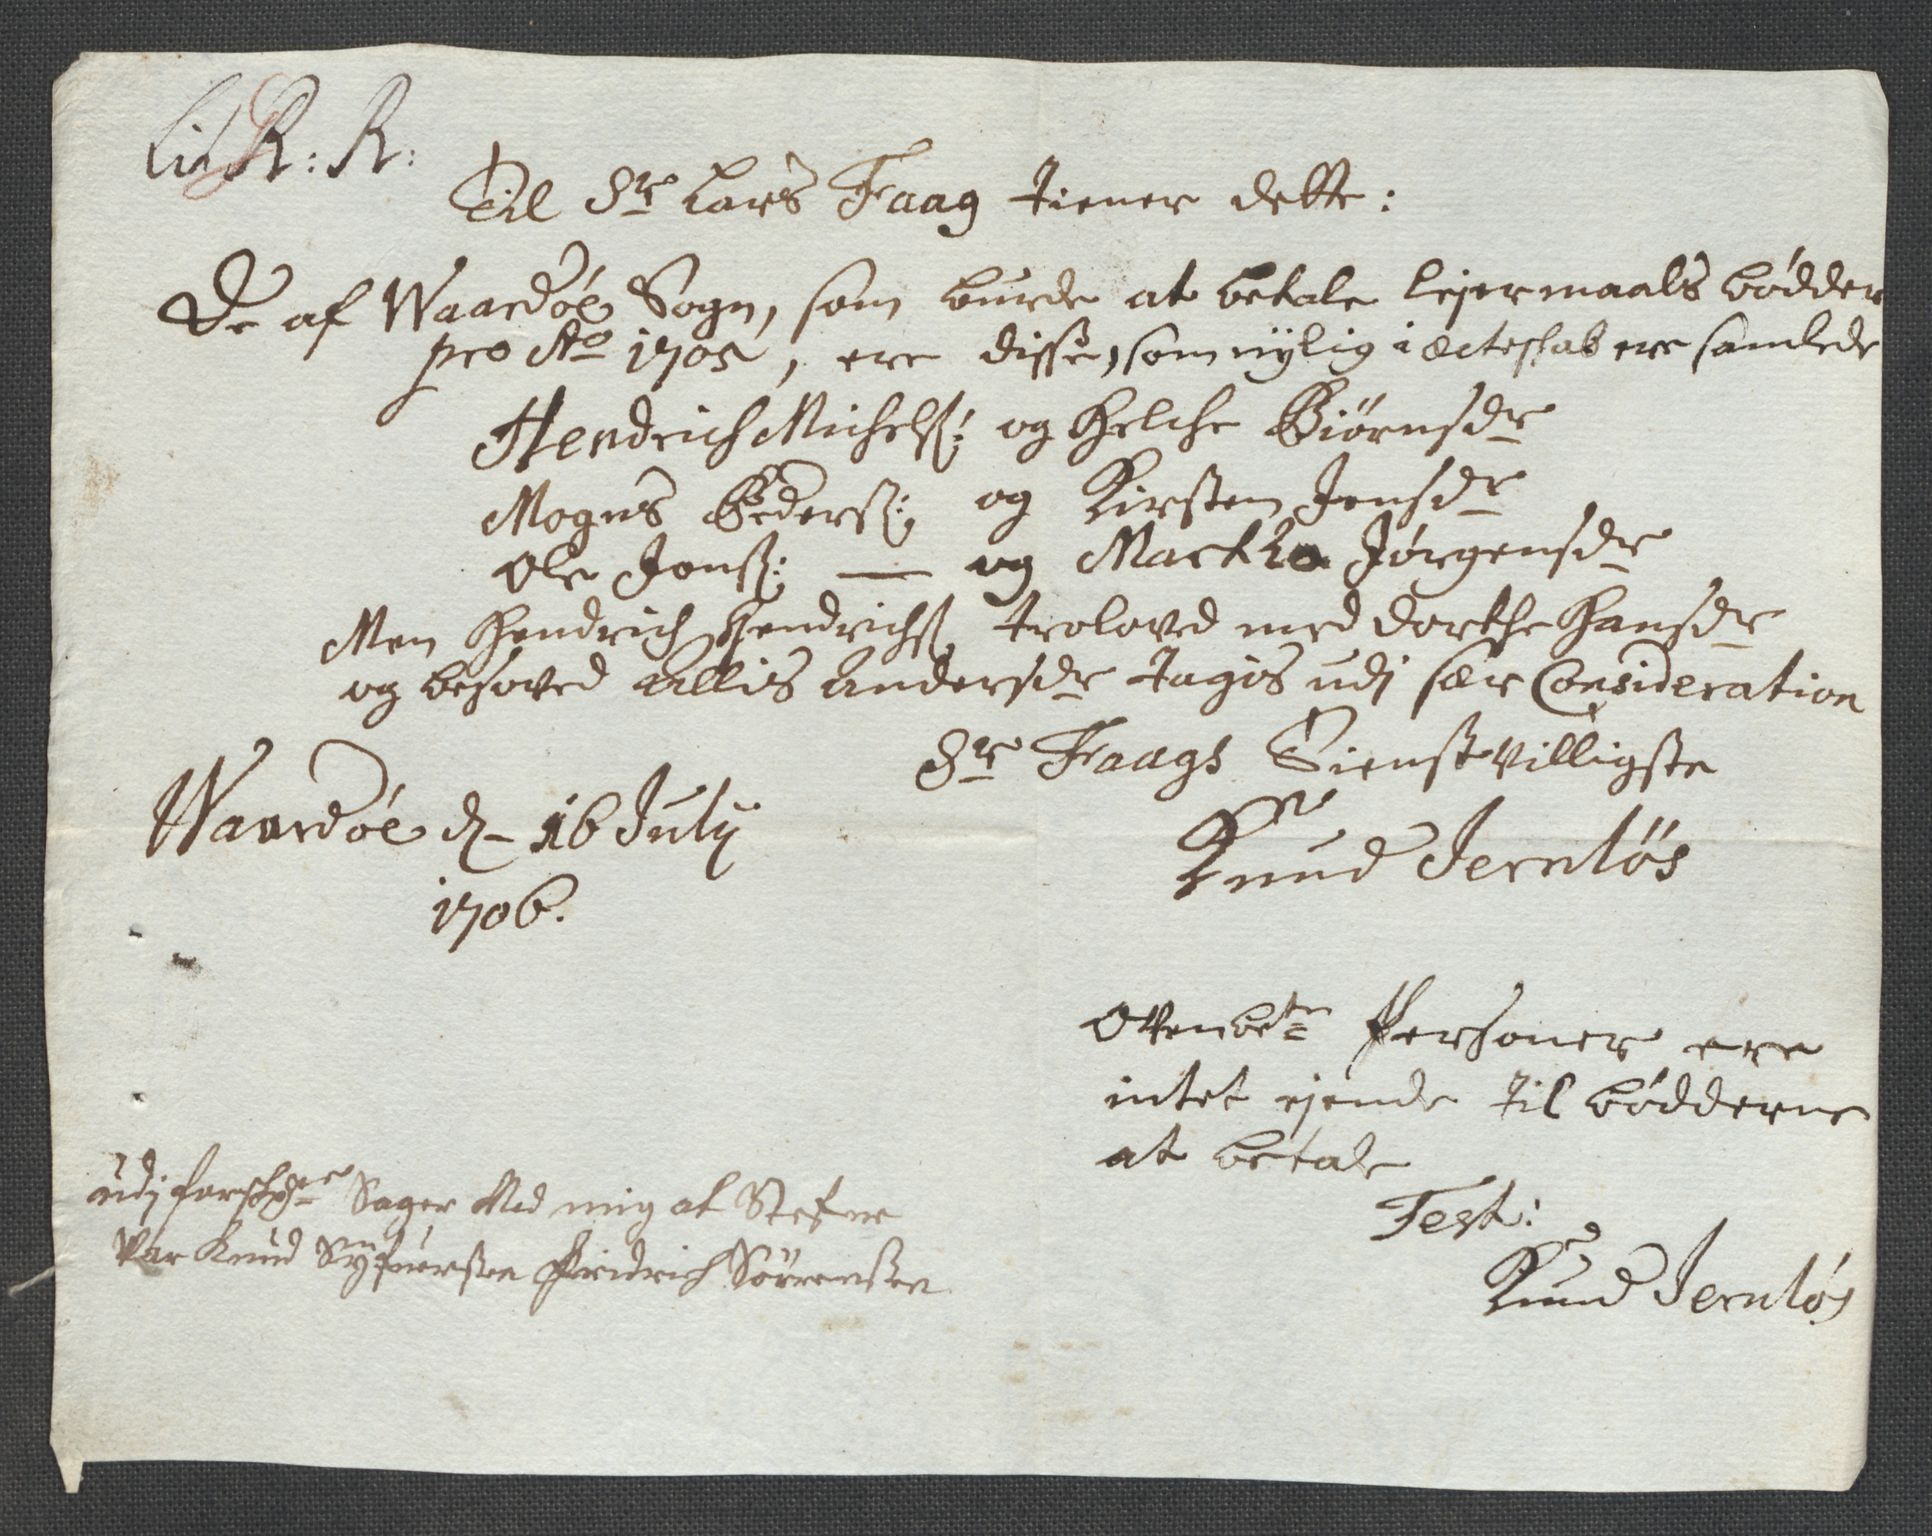 Lit R: R:
Til Sr Lars Faag tiener dette:
De af Waardøe Sogn, som burde at betale lejermaals bødder
pro Ao 1705, ere disse, som nylig i ecteskab ere samlede
Hendrich Michelß: og Helche Biørnsdr
Mogns Pederß: og Kirsten Jensdr
Ole Jonß: — og Martha Jørgensdr
Men Hendrich Hendrichß, trolovd med dorthe Hansdr
og besoved Allis Andersdr tagis udj sær Consideration
Sr Faags Tienstvilligste
Knud Jernløs
Waardøe d– 16 July
1706.
Ovenbete Persohner ere
intet ejende til bødderne
at betale
Test:
Knud Jernløs
udj Sager Med mig at Stefne
Var Knud Syfuersen Fridrich Sørrensen